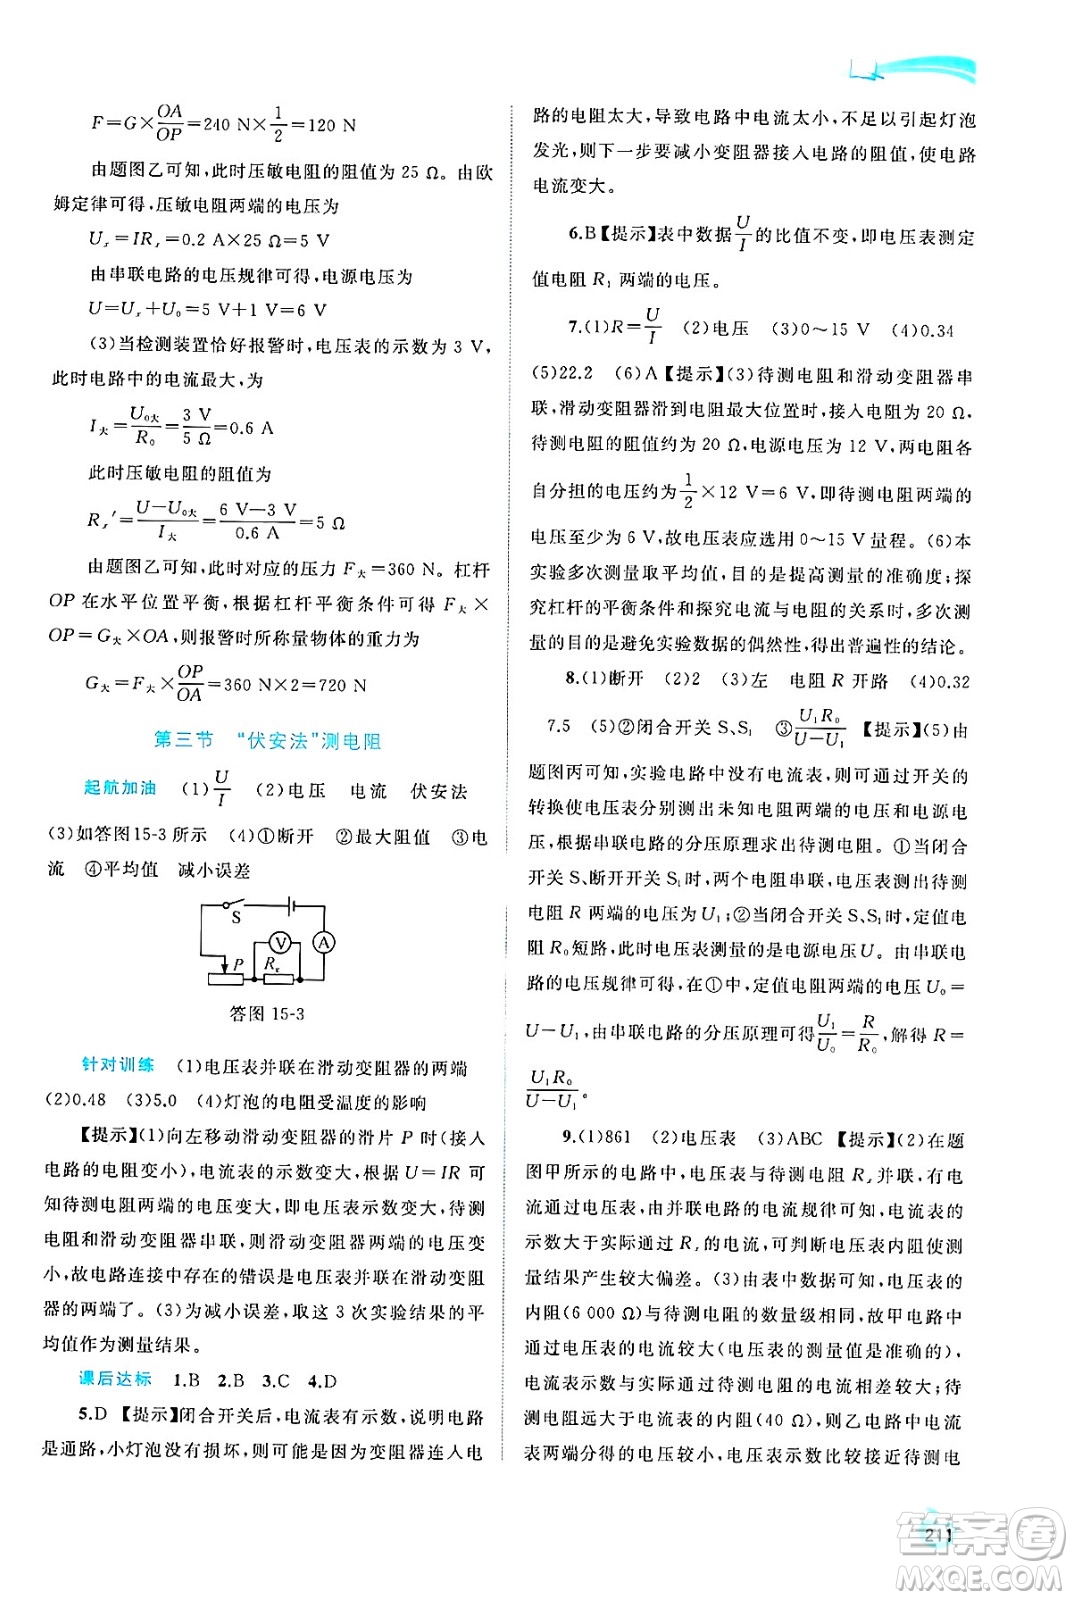 F=G×OA/OP=240 N×1/2=120 N
由题图乙可知，此时压敏电阻的阻值为 25 Ω。由欧
姆定律可得，压敏电阻两端的电压为
Uₓ=IRₓ=0.2 A×25 Ω=5 V
由串联电路的电压规律可得，电源电压为
U=Uₓ+U₀=5 V+1 V=6 V
(3)当检测装置恰好报警时，电压表的示数为 3 V，
此时电路中的电流最大，为
I大=U₀大/R₀=3 V/5 Ω=0.6 A
此时压敏电阻的阻值为
Rₓ′=(U−U₀大)/I大=(6 V−3 V)/0.6 A=5 Ω
由题图乙可知，此时对应的压力 F大=360 N。杠杆
OP 在水平位置平衡，根据杠杆平衡条件可得 F大×
OP=G大×OA，则报警时所称量物体的重力为
G大=F大×OP/OA=360 N×2=720 N
第三节 “伏安法”测电阻
起航加油 (1)U/I (2)电压 电流 伏安法
(3)如答图15-3所示 (4)①断开 ②最大阻值 ③电
流 ④平均值 减小误差
S
V
A
P
Rₓ
答图 15-3
针对训练 (1)电压表并联在滑动变阻器的两端
(2)0.48 (3)5.0 (4)灯泡的电阻受温度的影响
【提示】(1)向左移动滑动变阻器的滑片 P 时(接入
电路的电阻变小)，电流表的示数变大，根据 U=IR 可
知待测电阻两端的电压变大，即电压表示数变大，待测
电阻和滑动变阻器串联，则滑动变阻器两端的电压变
小，故电路连接中存在的错误是电压表并联在滑动变阻
器的两端了。(3)为减小误差，取这 3 次实验结果的平
均值作为测量结果。
课后达标 1.B 2.B 3.C 4.D
5.D 【提示】闭合开关后，电流表有示数，说明电路
是通路，小灯泡没有损坏，则可能是因为变阻器连入电
路的电阻太大，导致电路中电流太小，不足以引起灯泡
发光，则下一步要减小变阻器接入电路的阻值，使电路
电流变大。
6.B【提示】表中数据U/I的比值不变，即电压表测定
值电阻 R₁ 两端的电压。
7.(1)R=U/I (2)电压 (3)0～15 V (4)0.34
(5)22.2 (6)A【提示】(3)待测电阻和滑动变阻器串
联，滑动变阻器滑到电阻最大位置时，接入电阻为 20 Ω，
待测电阻的阻值约为 20 Ω，电源电压为 12 V，两电阻各
自分担的电压约为1/2×12 V=6 V，即待测电阻两端的
电压至少为 6 V，故电压表应选用 0～15 V 量程。(6)本
实验多次测量取平均值，目的是提高测量的准确度；探
究杠杆的平衡条件和探究电流与电阻的关系时，多次测
量的目的是避免实验数据的偶然性，得出普遍性的结论。
8.(1)断开 (2)2 (3)左 电阻 R 开路 (4)0.32
7.5 (5)②闭合开关 S、S₁ ③U₁R₀/(U−U₁)【提示】(5)由
题图丙可知，实验电路中没有电流表，则可通过开关的
转换使电压表分别测出未知电阻两端的电压和电源电
压，根据串联电路的分压原理求出待测电阻。①当闭合
开关 S、断开开关 S₁时，两个电阻串联，电压表测出待测
电阻 R 两端的电压为 U₁；②当闭合开关 S、S₁时，定值电
阻 R₀短路，此时电压表测量的是电源电压 U。由串联电
路的电压规律可得，在①中，定值电阻两端的电压 U₀=
U−U₁，由串联电路的分压原理可得U₁/U₀=R/R₀，解得 R=
U₁R₀/(U−U₁)。
9.(1)861 (2)电压表 (3)ABC 【提示】(2)在题
图甲所示的电路中，电压表与待测电阻 Rₓ并联，有电
流通过电压表，由并联电路的电流规律可知，电流表的
示数大于实际通过 Rₓ的电流，可判断电压表内阻使测
量结果产生较大偏差。(3)由表中数据可知，电压表的
内阻(6 000 Ω)与待测电阻的数量级相同，故甲电路中
通过电压表的电流较大(电压表的测量值为准确值)，
电流表示数与实际通过待测电阻的电流相差较大；待
测电阻远大于电流表的内阻(40 Ω)，则乙电路中电流
表两端分得的电压较小，电压表示数比较接近待测电
211
答案卷
MXQE.COM